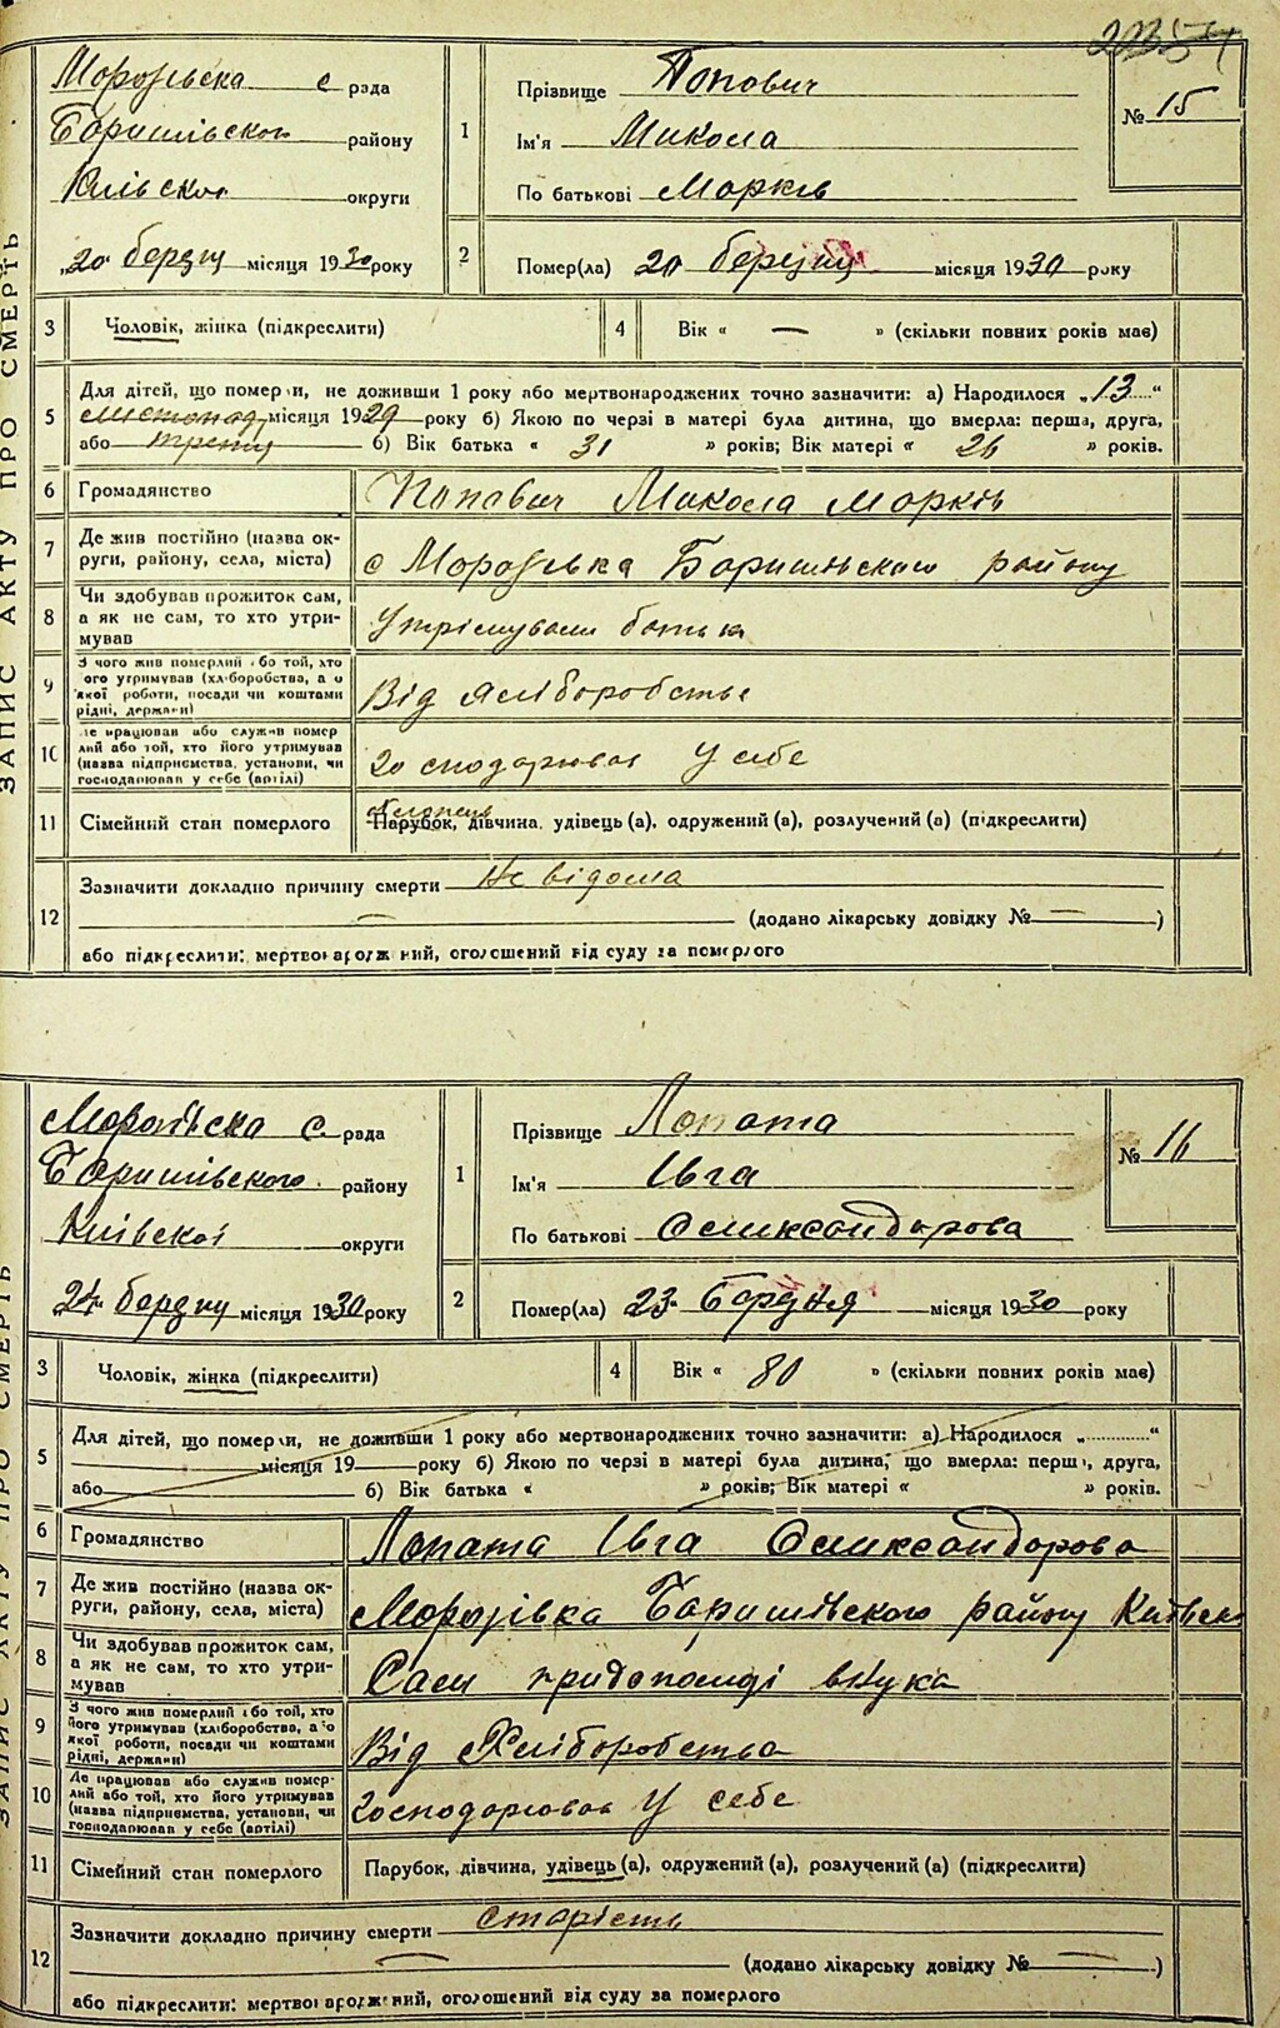 ЗАПИС АКТУ ПРО СМЕРТЬ
Морозівська с рада
Баришівського району
Київської округи
„20“ березня місяця 1930 року
1
Прізвище Попович
Ім'я Микола
По батькові Марків
№ 15
2
Помер(ла) 20 березня місяця 1930 року
3 Чоловік, жінка (підкреслити)
4 Вік « — » (скільки повних років має)
5 Для дітей, що померли, не доживши 1 року або мертвонароджених точно зазначити: а) Народилося „13“
листопад місяця 1929 року б) Якою по черзі в матері була дитина, що вмерла: перша, друга,
або б) Вік батька « 31 » років; Вік матері « 26 » років.
6 Громадянство Попович Микола Марків
7 Де жив постійно (назва округи, району, села, міста) с Морозівка Баришівського району
8 Чи здобував прожиток сам,
а як не сам, то хто утримував
Утрімували батька
9 З чого жив померлий або той, хто
його утримував (хліборобства, а о
якої роботи, посади чи коштами
рідні, держави)
Від хліборобства
10 Де працював або служив помер
лий або той, хто його утримував
(назва підприємства, установи, чи
господарював у себе (артілі)
Господарював У себе
11 Сімейний стан померлого хлопець
Парубок, дівчина, удівець (а), одружений (а), розлучений (а) (підкреслити)
12 Зазначити докладно причину смерти Не відома
— (додано лікарську довідку № — )
або підкреслити: мертвонароджений, оголошений від суду за померлого
ЗАПИС АКТУ ПРО СМЕРТЬ
Морозівська с. рада
Баришівського району
Київської округи
24 березня місяця 1930 року
1
Прізвище Лопата
Ім'я Івга
По батькові Олександрова
№ 16
2
Помер(ла) 23 березня місяця 1930 року
3 Чоловік, жінка (підкреслити)
4 Вік « 80 » (скільки повних років має)
5 Для дітей, що померли, не доживши 1 року або мертвонароджених точно зазначити: а) Народилося „ “
місяця 19 року б) Якою по черзі в матері була дитина, що вмерла: перша, друга,
або б) Вік батька « » років; Вік матері « » років.
6 Громадянство Лопата Івга Олександрова
7 Де жив постійно (назва округи, району, села, міста) Морозівка Баришівського району Київськ
8 Чи здобував прожиток сам,
а як не сам, то хто утримував
Сам придопомозі внука
9 З чого жив померлий або той, хто
його утримував (хліборобства, або
якої роботи, посади чи коштами
рідні, держави)
Від Хліборобства
10 Де працював або служив померлий або той, хто його утримував
(назва підприємства, установи, чи
господарював у себе (артілі)
Господарював У себе
11 Сімейний стан померлого Парубок, дівчина, удівець (а), одружений (а), розлучений (а) (підкреслити)
12 Зазначити докладно причину смерти старість
— (додано лікарську довідку № — )
або підкреслити: мертвонароджений, оголошений від суду за померлого